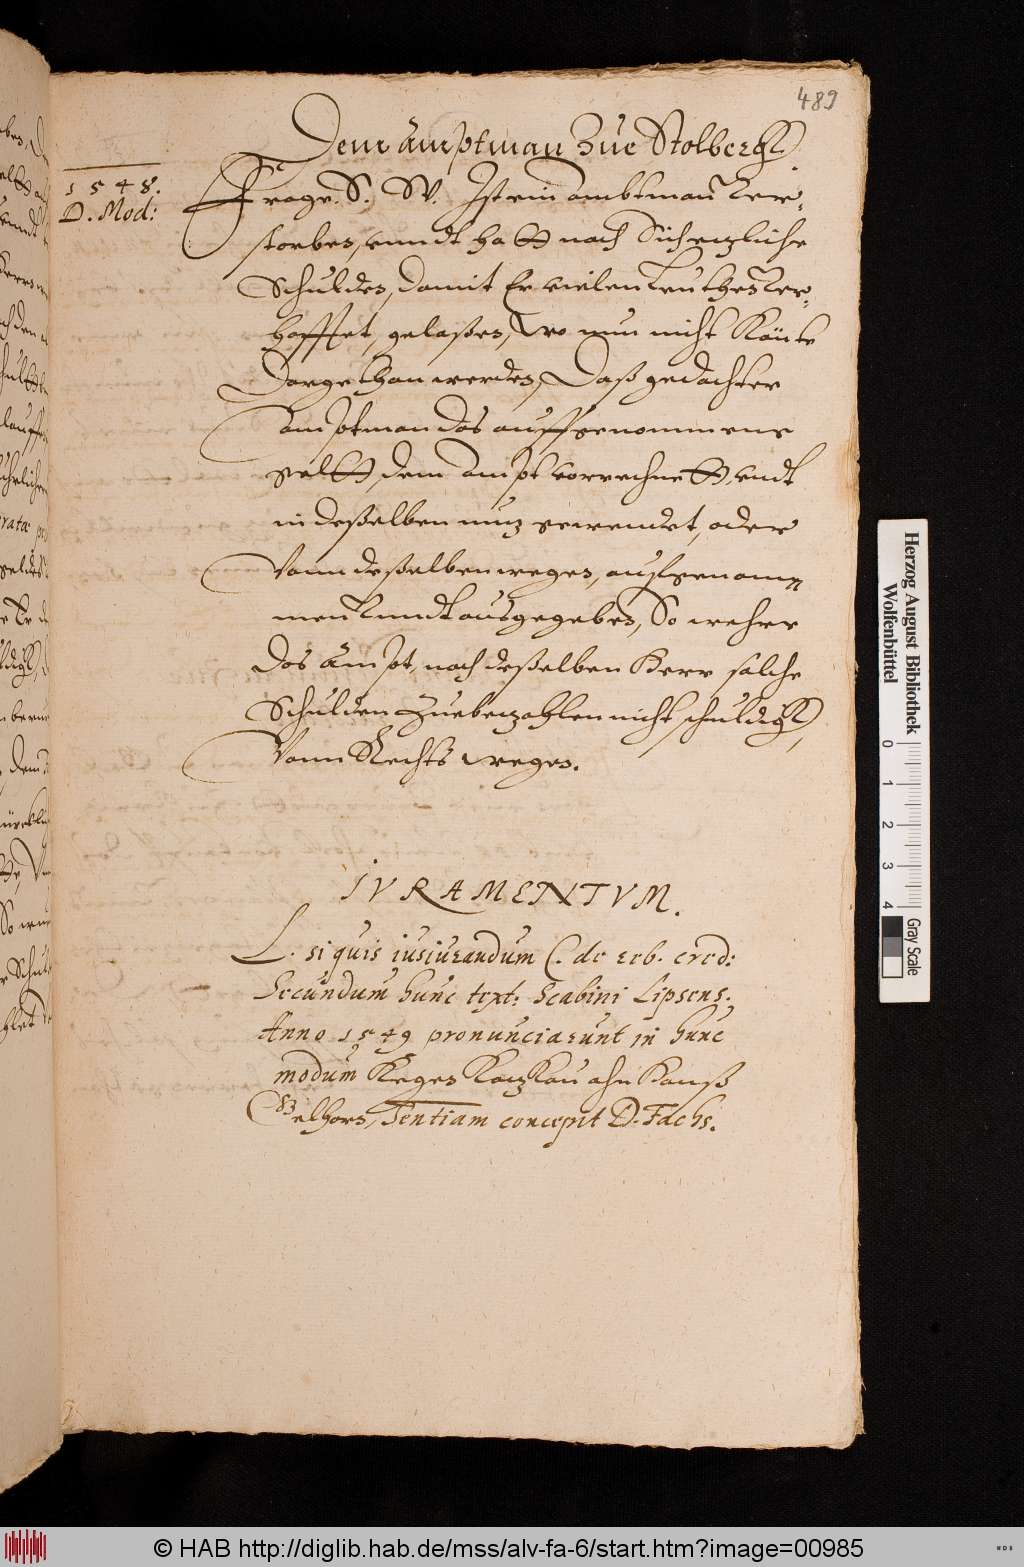 489
Dem Amptman Zue Stolbergk.
1548.
D. Mod:
Frage. S. W. Ist ein ambtman ver,
storben, unndt hatt nach Sich etzliche
Schulden, damit Er vielen Leuthen ver,
hafftet, gelaßen, Wo nun nicht Könte
Dargethan werden, Daß gedachter
Amptman das auffgenommene
geltt, dem Ampt vorrechnett, undt
in deßelben nuz gewendet, oder
Vonn deßelben wegen, aufgenom
men unndt ausgegeben, So wehre
das Ampt, nach deßelben Herr solche
Schulden Zuebezahlen nicht schuldigk,
Vonn Rechts wegen.
IVRAMENTVM.
L. si quis iusiurandum C. de reb. cred:
Secundum hunc text: Scabini Lipsens.
Anno 1549 pronunciarunt in hunc
modum Kegen ahn Hanß
Sentiam concepit D. Fachs.
Herzog August Bibliothek
Wolfenbüttel
0 1 2 3 4
Gray Scale
© HAB http://diglib.hab.de/mss/alv-fa-6/start.htm?image=00985